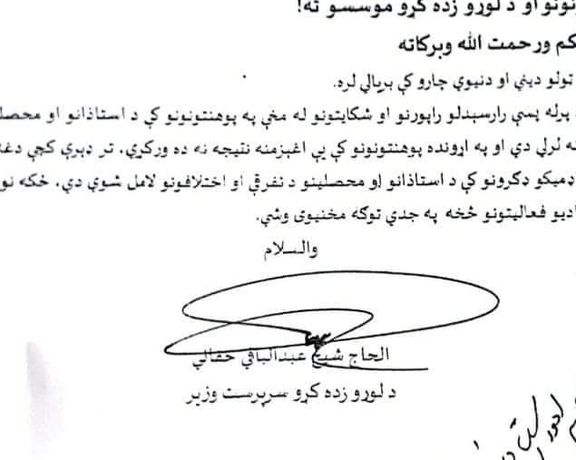 ونو او د لوړو زده کړو موسسو ته!
کم ورحمت الله وبرکاته
ټولو ديني او دنيوي چارو کې بريالي لره.
پرله پسې رارسېدلو راپورنو او شکايتونو له مخې په پوهنتونونو کې د استاذانو او محصل
ه لرلي دي او په اړونده پوهنتونونو کې يې اغېزمنه نتيجه نه ده ورکړې، تر ډېرې کچې دغه
ډميکو ډګرونو کې د استاذانو او محصلينو د نفرقې او اختلافونو لامل شوي دي، ځکه نو
اديو فعاليتونو څخه په جدي توګه مخنيوی وشي.
والسلام
الحاج شيخ عبدالباقي حقاني
د لوړو زده کړو سرپرست وزير